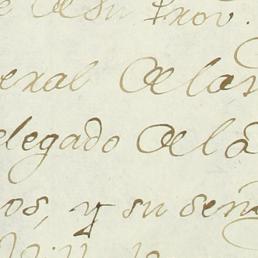 de su Prov.
eral de la
delegado de la
os, y su señ